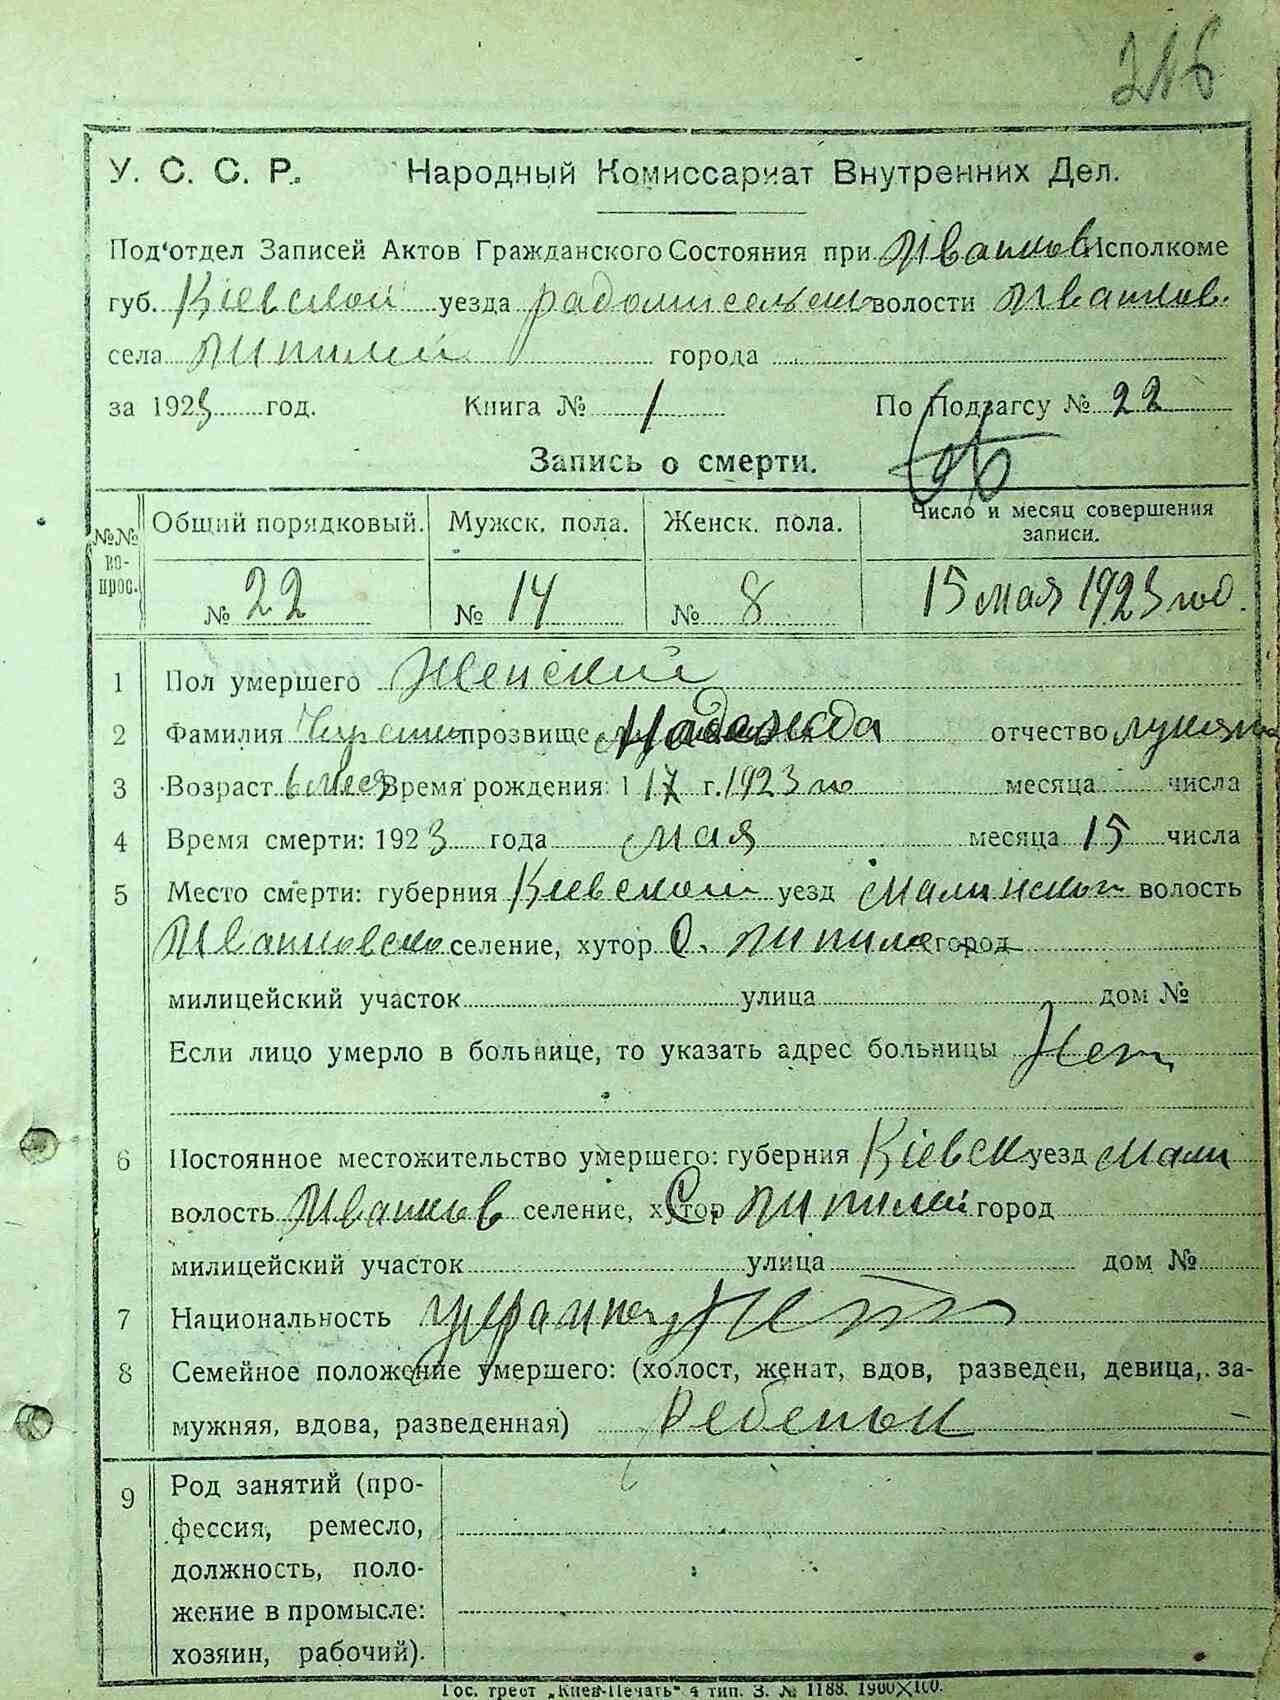 У. С. С. Р. Народный Комиссариат Внутренних Дел.
Под'отдел Записей Актов Гражданского Состояния при Исполкоме
губ. Кіевской уезда волости
села города
за 1923 год. Книга № 1 По Подзагсу № 22
Запись о смерти.
№№ вопрос. Общий порядковый. Мужск. пола. Женск. пола. Число и месяц совершения записи.
№ 22 № 14 № 8 15 мая 1923 год.
1 Пол умершего Женский
2 Фамилия прозвище Надежда отчество
3 Возраст Время рождения: 1 г. 1923 го месяца числа
4 Время смерти: 1923 года мая месяца 15 числа
5 Место смерти: губерния Киевской уезд волость
селение, хутор С. город
милицейский участок улица дом №
Если лицо умерло в больнице, то указать адрес больницы Нет
6 Постоянное местожительство умершего: губерния Кіевск уезд Мали
волость селение, хутор С. город
милицейский участок улица дом №
7 Национальность
8 Семейное положение умершего: (холост, женат, вдов, разведен, девица, за-
мужняя, вдова, разведенная) Ребенок
9 Род занятий (про-
фессия, ремесло,
должность, поло-
жение в промысле:
хозяин, рабочий).
Гос. трест „Киев-Печать" 4 тип. З. № 1188. 1900×100.